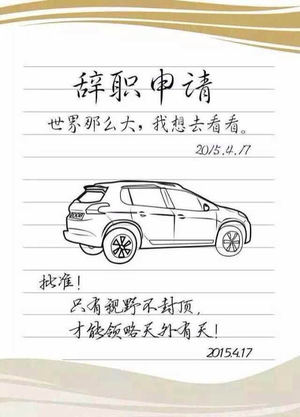 辞职申请
世界那么大，我想去看看。
2015.4.17
批准！
只有视野不封顶，
才能领略天外有天！
2015.4.17